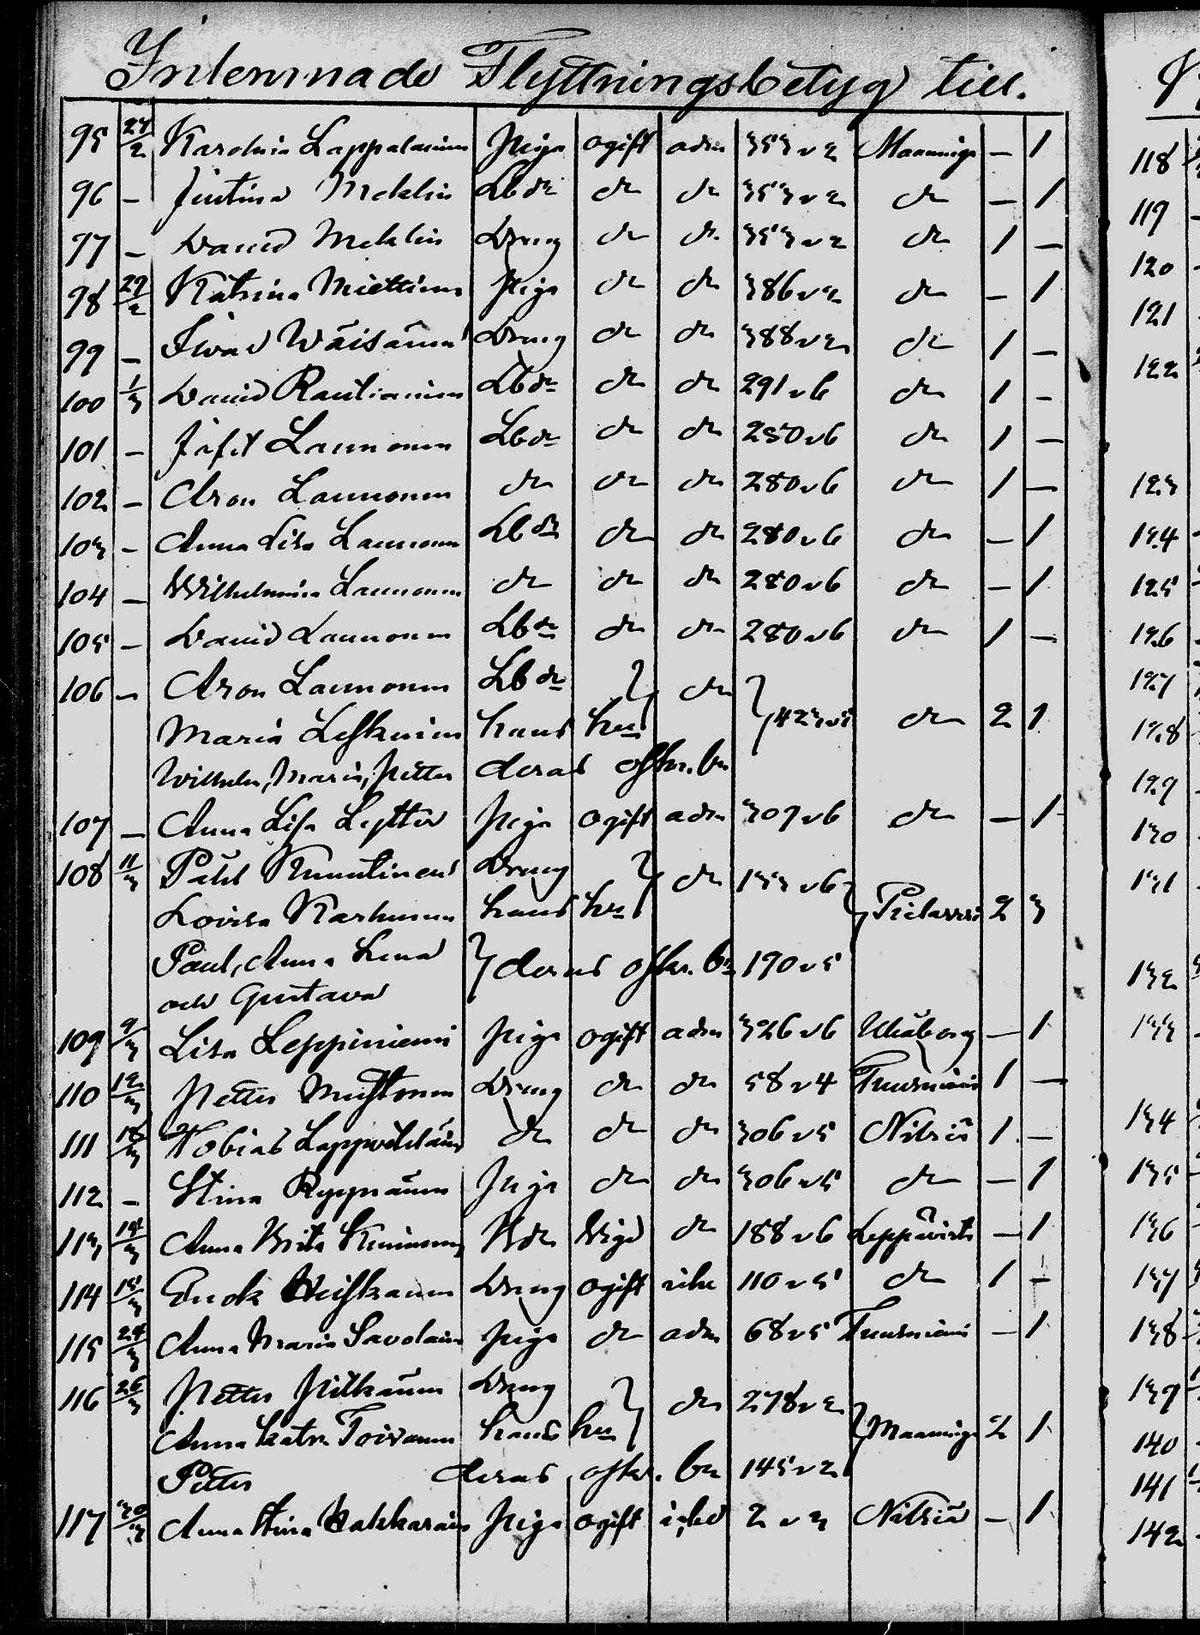 Inlemnade Flyttningsbetyg till.
95 27/2 Karolina Lappalainen Piga ogift adm 353 v 2 Maaninga — 1
96 — Justina Meklin Lbdr dr dr 353 v 2 dr — 1
97 — David Meklin Dreng dr dr 353 v 2 dr 1 —
98 29/2 Katrina Miettinen Piga dr dr 386 v 2 dr — 1
99 — Iwar Wäisänen Dreng dr dr 388 v 2 dr 1 —
100 1/3 David Rautianinen Lbdr dr dr 291 v 6 dr 1 —
101 — Jafet Launonen Lbdr dr dr 280 v 6 dr 1 —
102 — Aron Launonen dr dr dr 280 v 6 dr 1 —
103 — Anna Lisa Launonen Lbdr dr dr 280 v 6 dr — 1
104 — Wilhelmina Launonen dr dr dr 280 v 6 dr — 1
105 — David Launonen Lbdr dr dr 280 v 6 dr 1 —
106 — Aron Launonen Lbdr dr
Maria Leskinen hans hu 423 v 5 dr 2 1
Wilhelm, Maria, Petter deras
107 — Anna Lisa Lytter Piga ogift adm 309 v 6 dr — 1
108 11/3 Påhl Knuutinen Dreng dr 133 v 6
Lovisa Karhunen hans hu Pielavesi 2 3
Paul, Anna Lena deras 190 v 5
och Gustava
109 9/3 Lisa Leppiniemi Piga ogift adm 326 v 6 Uleåborg — 1
110 12/3 Petter Mustonen Dreng dr dr 58 v 4 Tuusniemi 1 —
111 18/3 Tobias dr dr dr 306 v 5 Nilsiä 1 —
112 — Stina Ryynänen Piga dr dr 306 v 5 dr — 1
113 14/3 Anna Brita dr 188 v 6 Leppävirta — 1
114 15/3 Dreng ogift 110 v 5 dr 1 —
115 24/3 Anna Maria Savolain Piga dr adm 68 v 5 Tuusniemi — 1
116 26/3 Petter Pitkänen Dreng dr 278 v 2
Anna Katr. Toivanen hans hu Maaninga 2 1
Petter deras 145 v 2
117 30/3 Anna Stina Hakkarain Piga ogift 2 v 3 Nilsiä — 1
118
119
120
121
122
123
124
125
126
127
128
129
130
131
132
133
134
135
136
137
138
139
140
141
142